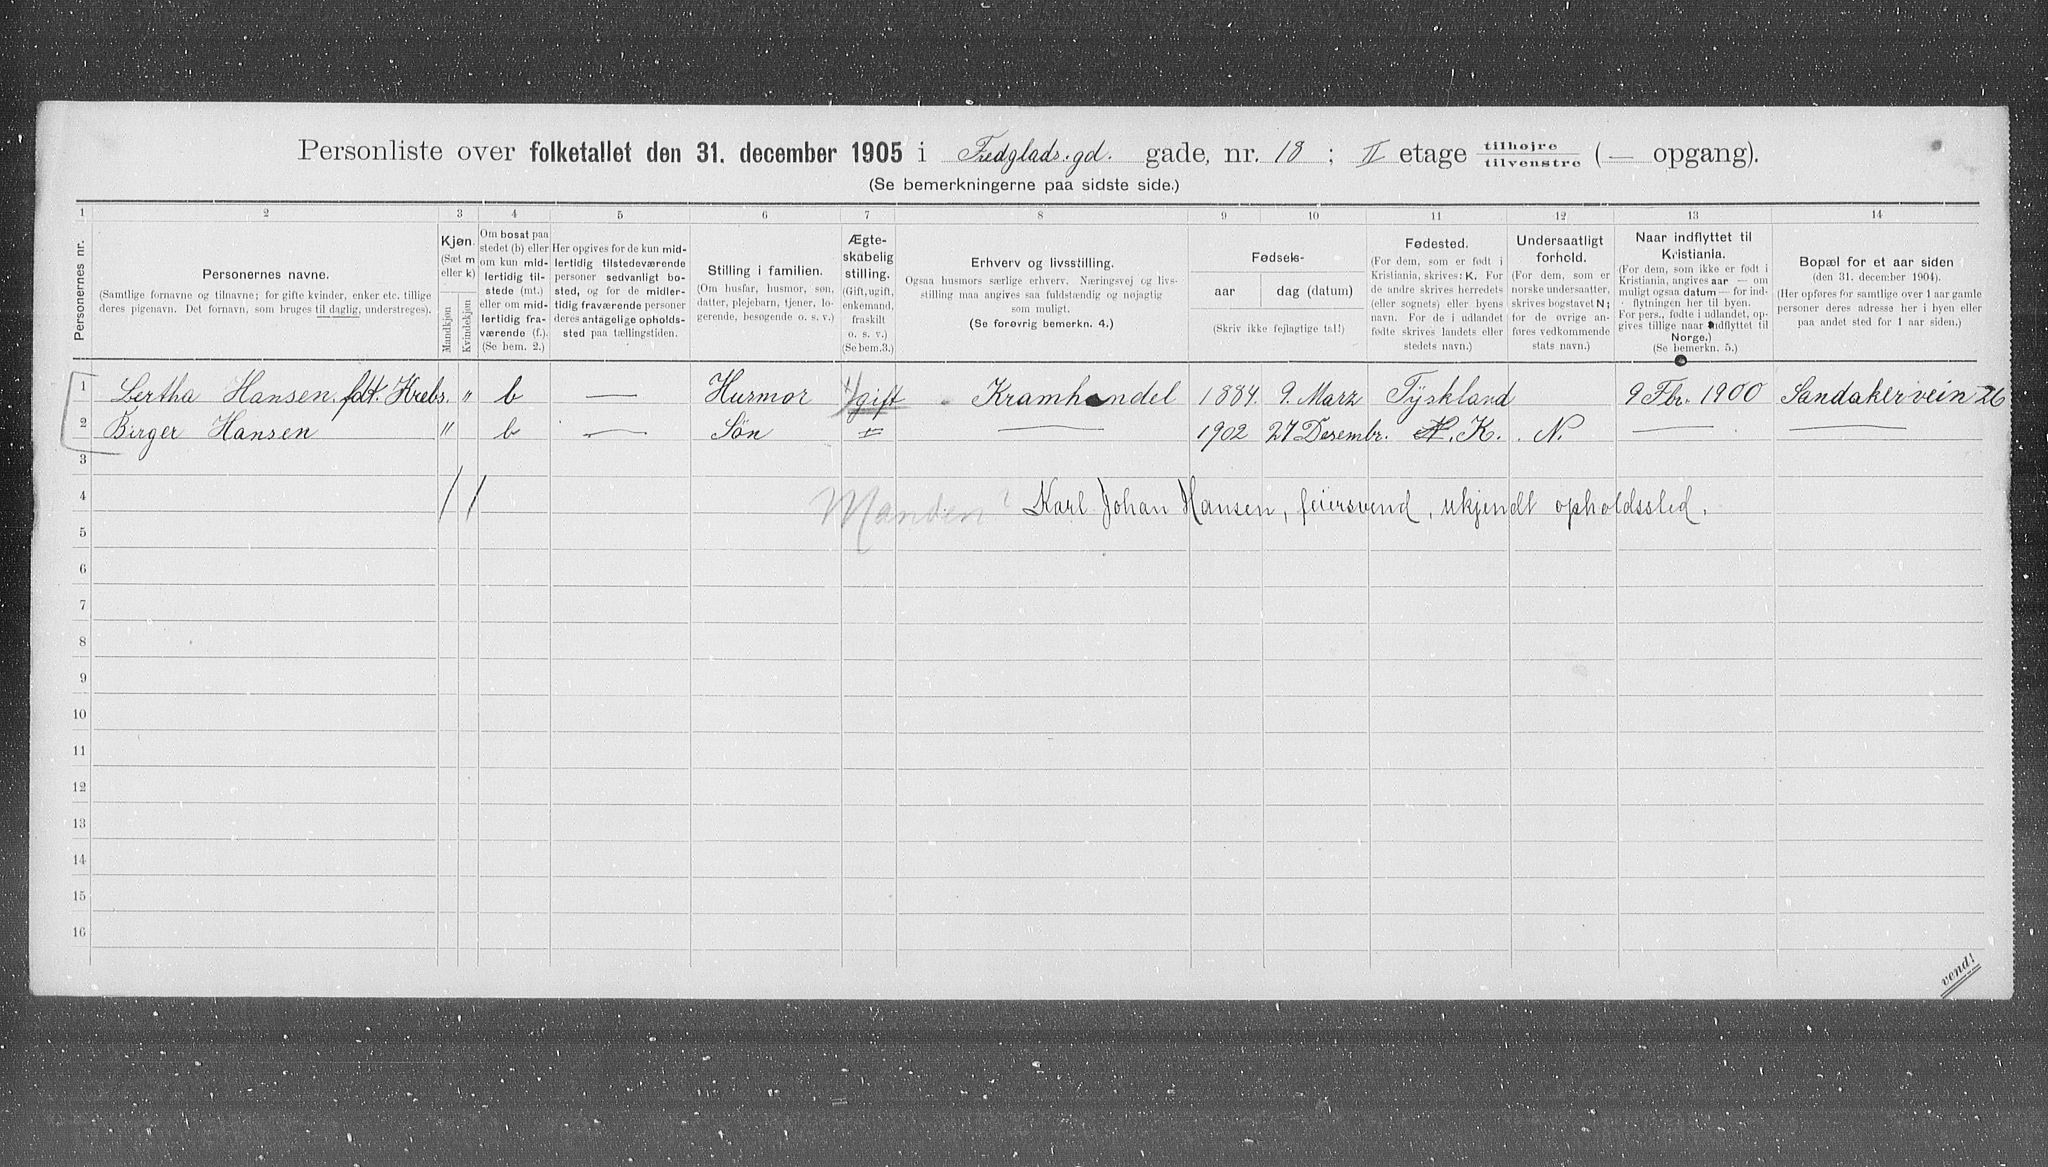 Personliste over folketallet den 31. december 1905 i Fredglads.gd. gade, nr. 18 ; II etage tilhøjre tilvenstre ( — opgang).
(Se bemerkningerne paa sidste side.)
1 2 3 4 5 6 7 8 9 10 11 12 13 14
Personernes nr.
Personernes navne.
(Samtlige fornavne og tilnavne; for gifte kvinder, enker etc. tillige
deres pigenavn. Det fornavn, som bruges til daglig, understreges).
Kjøn.
(Sæt m
eller k)
Mandkjøn
Kvindekjøn
Om bosat paa
stedet (b) eller
om kun mid-
lertidig til-
stede (mt.)
eller om mid-
lertidig fra-
værende (f.).
(Se bem. 2.)
Her opgives for de kun mid-
lertidig tilstedeværende
personer sedvanligt bo-
sted, og for de midler-
tidig fraværende personer
deres antagelige opholds-
sted paa tællingstiden.
Stilling i familien.
(Om husfar, husmor, søn,
datter, plejebarn, tjener, lo-
gerende, besøgende o. s. v.)
Ægte-
skabelig
stilling.
(Gift, ugift,
enkemand,
fraskilt
o. s. v.)
(Se bem.3.)
Erhverv og livsstilling.
Ogsaa husmors særlige erhverv. Næringsvej og livs-
stilling maa angives saa fuldstændig og nøjagtig
som muligt.
(Se forøvrig bemerkn. 4.)
Fødsels-
aar dag (datum)
(Skriv ikke fejlagtige tal!)
Fødested.
(For dem, som er født i
Kristiania, skrives: K. For
de andre skrives herredets
(eller sognets) eller byens
navn. For de i udlandet
fødte skrives landets eller
stedets navn.)
Undersaatligt
forhold.
(For dem, som er
norske undersaatter,
skrives bogstavet N;
for de øvrige an-
føres vedkommende
stats navn.)
Naar indflyttet til
Kristiania.
(For dem, som ikke er født i
Kristiania, angives aar — om
muligt ogsaa datum — for ind-
flytningen her til byen.
For pers., fødte i udlandet, op-
gives tillige naar indflyttet til
Norge.)
(Se bemerkn. 5.)
Bopæl for et aar siden
(den 31. december 1904).
(Her opføres for samtlige over 1 aar gamle
personer deres adresse her i byen eller
paa andet sted for 1 aar siden.)
1 Bertha Hansen. fdt. Krebs. " b — Husmor gift Kramhandel 1884 9. Marz Tÿskland 9 Fbr. 1900 Sandakervein 26
2 Birger Hansen " b — Sön — 1902 27 Desembr. K. N. — —
3
4 Manden? Karl Johan Hansen, feiersvend, ukjendt opholdssted.
5
6
7
8
9
10
11
12
13
14
15
16
vend!